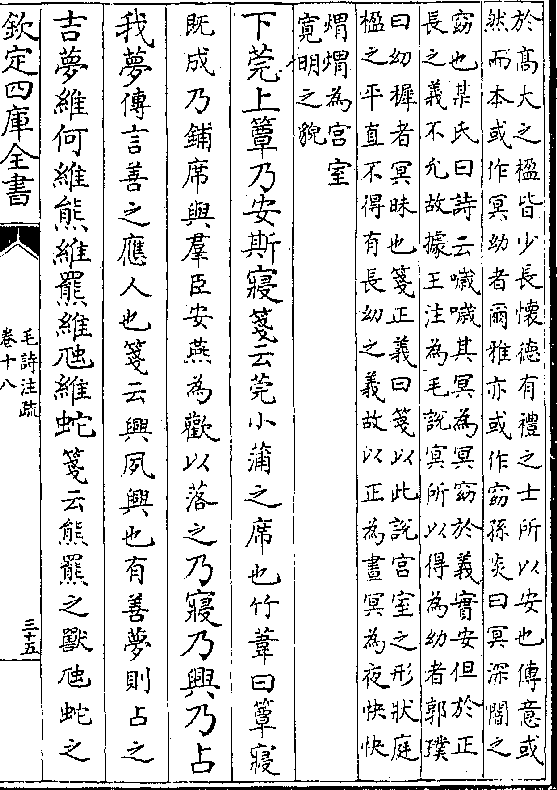 於高大之楹皆少長懷德有禮之士所以安也傳意或
然而本或作冥幼者爾雅亦或作窈孫炎曰冥深闇之
窈也某氏曰詩云噦噦其冥為冥窈於義實安但於正
長之義不允故據王注為毛說冥所以得為幼者郭璞
曰幼穉者冥昧也箋正義曰箋以此說宮室之形狀庭
楹之平直不得有長幼之義故以正為晝冥為夜快快
煟煟為宮室
寬明之貌
下莞上簟乃安斯寢箋云莞小蒲之席也竹葦曰簟寢
既成乃鋪席與羣臣安燕為歡以落之乃寢乃興乃占
我夢傳言善之應人也箋云興夙興也有善夢則占之
吉夢維何維熊維羆維虺維蛇箋云熊羆之獸虺蛇之
欽定四庫全書
毛詩注疏
卷十八
三十五